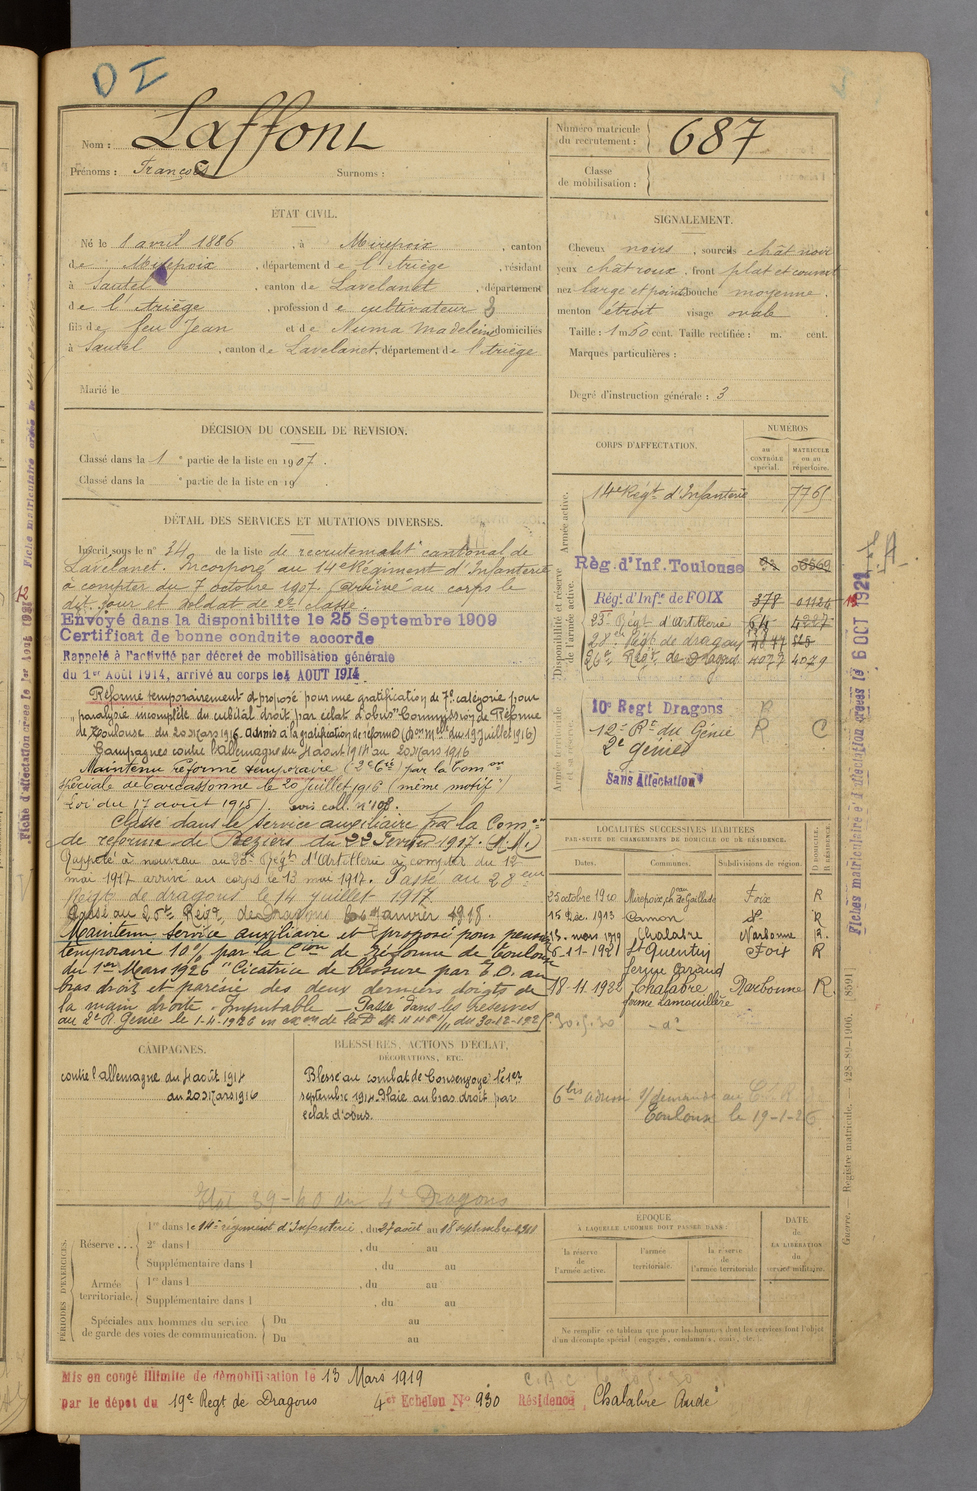 DI
Nom : Laffont
Prénoms : François Surnoms :
Numéro matricule du recrutement : 687
Classe de mobilisation :
ÉTAT CIVIL.
Né le 8 avril 1886, à Mirepoix, canton
de Mirepoix, département de l'Ariège, résidant
à Sautel, canton de Lavelanet, département
de l'Ariège, profession de cultivateur
fils de feu Jean et de Numa Madeleine domiciliés
à Sautel, canton de Lavelanet, département de l'Ariège
Marié le
SIGNALEMENT.
Cheveux noirs, sourcils chât noir
yeux chât roux, front plat et couvert
nez large et bouche moyenne.
menton étroit visage ovale
Taille : 1 m 60 cent. Taille rectifiée : m. cent.
Marques particulières :
Degré d'instruction générale : 3
DÉCISION DU CONSEIL DE REVISION.
Classé dans la 1e partie de la liste en 1907.
Classé dans la e partie de la liste en 19
DÉTAIL DES SERVICES ET MUTATIONS DIVERSES.
Inscrit sous le n° 34 de la liste de recrutement cantonal de
Lavelanet. Incorporé au 14e Régiment d'Infanterie
à compter du 7 octobre 1907. Arrivé au corps le
dit jour et soldat de 2e classe.
Envoyé dans la disponibilité le 25 Septembre 1909
Certificat de bonne conduite accordé
Rappelé à l'activité par décret de mobilisation générale
du 1er Août 1914, arrivé au corps le 4 AOUT 1914
Réformé temporairement et proposé pour une gratification de 7e catégorie pour
"paralysie incomplète du cubital droit par éclat d'obus" Commission de Réforme
de Toulouse du 20 Mars 1916. Admis à la gratification de réforme (don Melle du 19 Juillet 1916)
Campagnes contre l'allemagne du 4 août 1914 au 20 Mars 1916
Maintenu réformé temporaire (2e Cie) par la Comon
spéciale de Carcassonne le 20 juillet 1916 (même motif)
Loi du 17 août 1915). avis coll. n° 108.
Classé dans le service auxiliaire par la Comon
de réforme de Béziers du 22 Février 1917. (M.M.)
Rappelé à nouveau au 23e Régt d'Artillerie à compter du 12
mai 1917 arrivé au corps le 13 mai 1917. Passé au 28eme
Régt de dragons le 14 juillet 1917
Passé au 26e Régt de Dragons le janvier 1918.
Maintenu service auxiliaire et proposé pour pension
temporaire 10% par la Cion de Réforme de Toulouse
du 1er Mars 1926 "Cicatrice de blessure par E.O. au
bras droit et parésie des deux derniers doigts de
la main droite. Imputable - Passé dans les réserves
au 2e R Génie le 1-4-1926 en exon de la D M du 30-12-1925
CORPS D'AFFECTATION.
NUMÉROS
AU CONTRÔLE spécial.
MATRICULE ou au répertoire.
Armée active.
14e Régt d'Infanterie 7765
Disponibilité et réserve de l'armée active.
Règ. d'Inf. Toulouse
Régt d'Infie de FOIX 378 01124
23e Régt d'Artillerie 64 4227
28e Régt de dragons
26e Régt de Dragons 4077 4079
Armée territoriale et sa réserve.
10e Regt Dragons R
12e Rt du Génie R C
2e génie
Sans Affectation
LOCALITÉS SUCCESSIVES HABITÉES
PAR SUITE DE CHANGEMENTS DE DOMICILE OU DE RÉSIDENCE.
Dates. Communes. Subdivisions de région. D DOMICILE. R RÉSIDENCE.
25 octobre 1910 Mirepoix, chau de Gaillade Foix R
15 Déc. 1913 Camon d° R
13 mars 1919 Chalabre Narbonne R.
6-11-1921 St Quentin Foix R
ferme
18-11-1922 Chalabre Narbonne R.
ferme Lamouillère
30-5-30 - d°
6 bis adresse s/demande au
Toulouse le 19-1-26
CAMPAGNES.
contre l'allemagne du 4 août 1914
au 20 Mars 1916
BLESSURES, ACTIONS D'ÉCLAT,
DÉCORATIONS, ETC.
Blessé au combat de Consenvoye le 1er
septembre 1914. Plaie au bras droit par
éclat d'obus.
39-40 du 4e Dragons
PÉRIODES D'EXERCICES.
Réserve ... 1re dans le 14e régiment d'Infanterie, du 27 août au 18 septembre 1911
2e dans l , du au
Supplémentaire dans l , du au
Armée territoriale. 1re dans l , du au
Supplémentaire dans l , du au
Spéciales aux hommes du service de garde des voies de communication. Du au
Du au
ÉPOQUE
À LAQUELLE L'HOMME DOIT PASSER DANS :
la réserve de l'armée active.
l'armée territoriale.
la réserve de l'armée territoriale
DATE de LA LIBÉRATION du service militaire.
Ne remplir ce tableau que pour les hommes dont les services font l'objet
d'un décompte spécial (engagés, condamnés, omis, etc.).
Mis en congé illimité de démobilisation le 13 Mars 1919
par le dépôt du 19e Regt de Dragons 4e Echelon N° 930 Résidence Chalabre Aude
Fiches matriculaire et d'affectation créées le 6 OCT 1921
Guerre. — Registre matricule. — 428-89-1906. [8591]